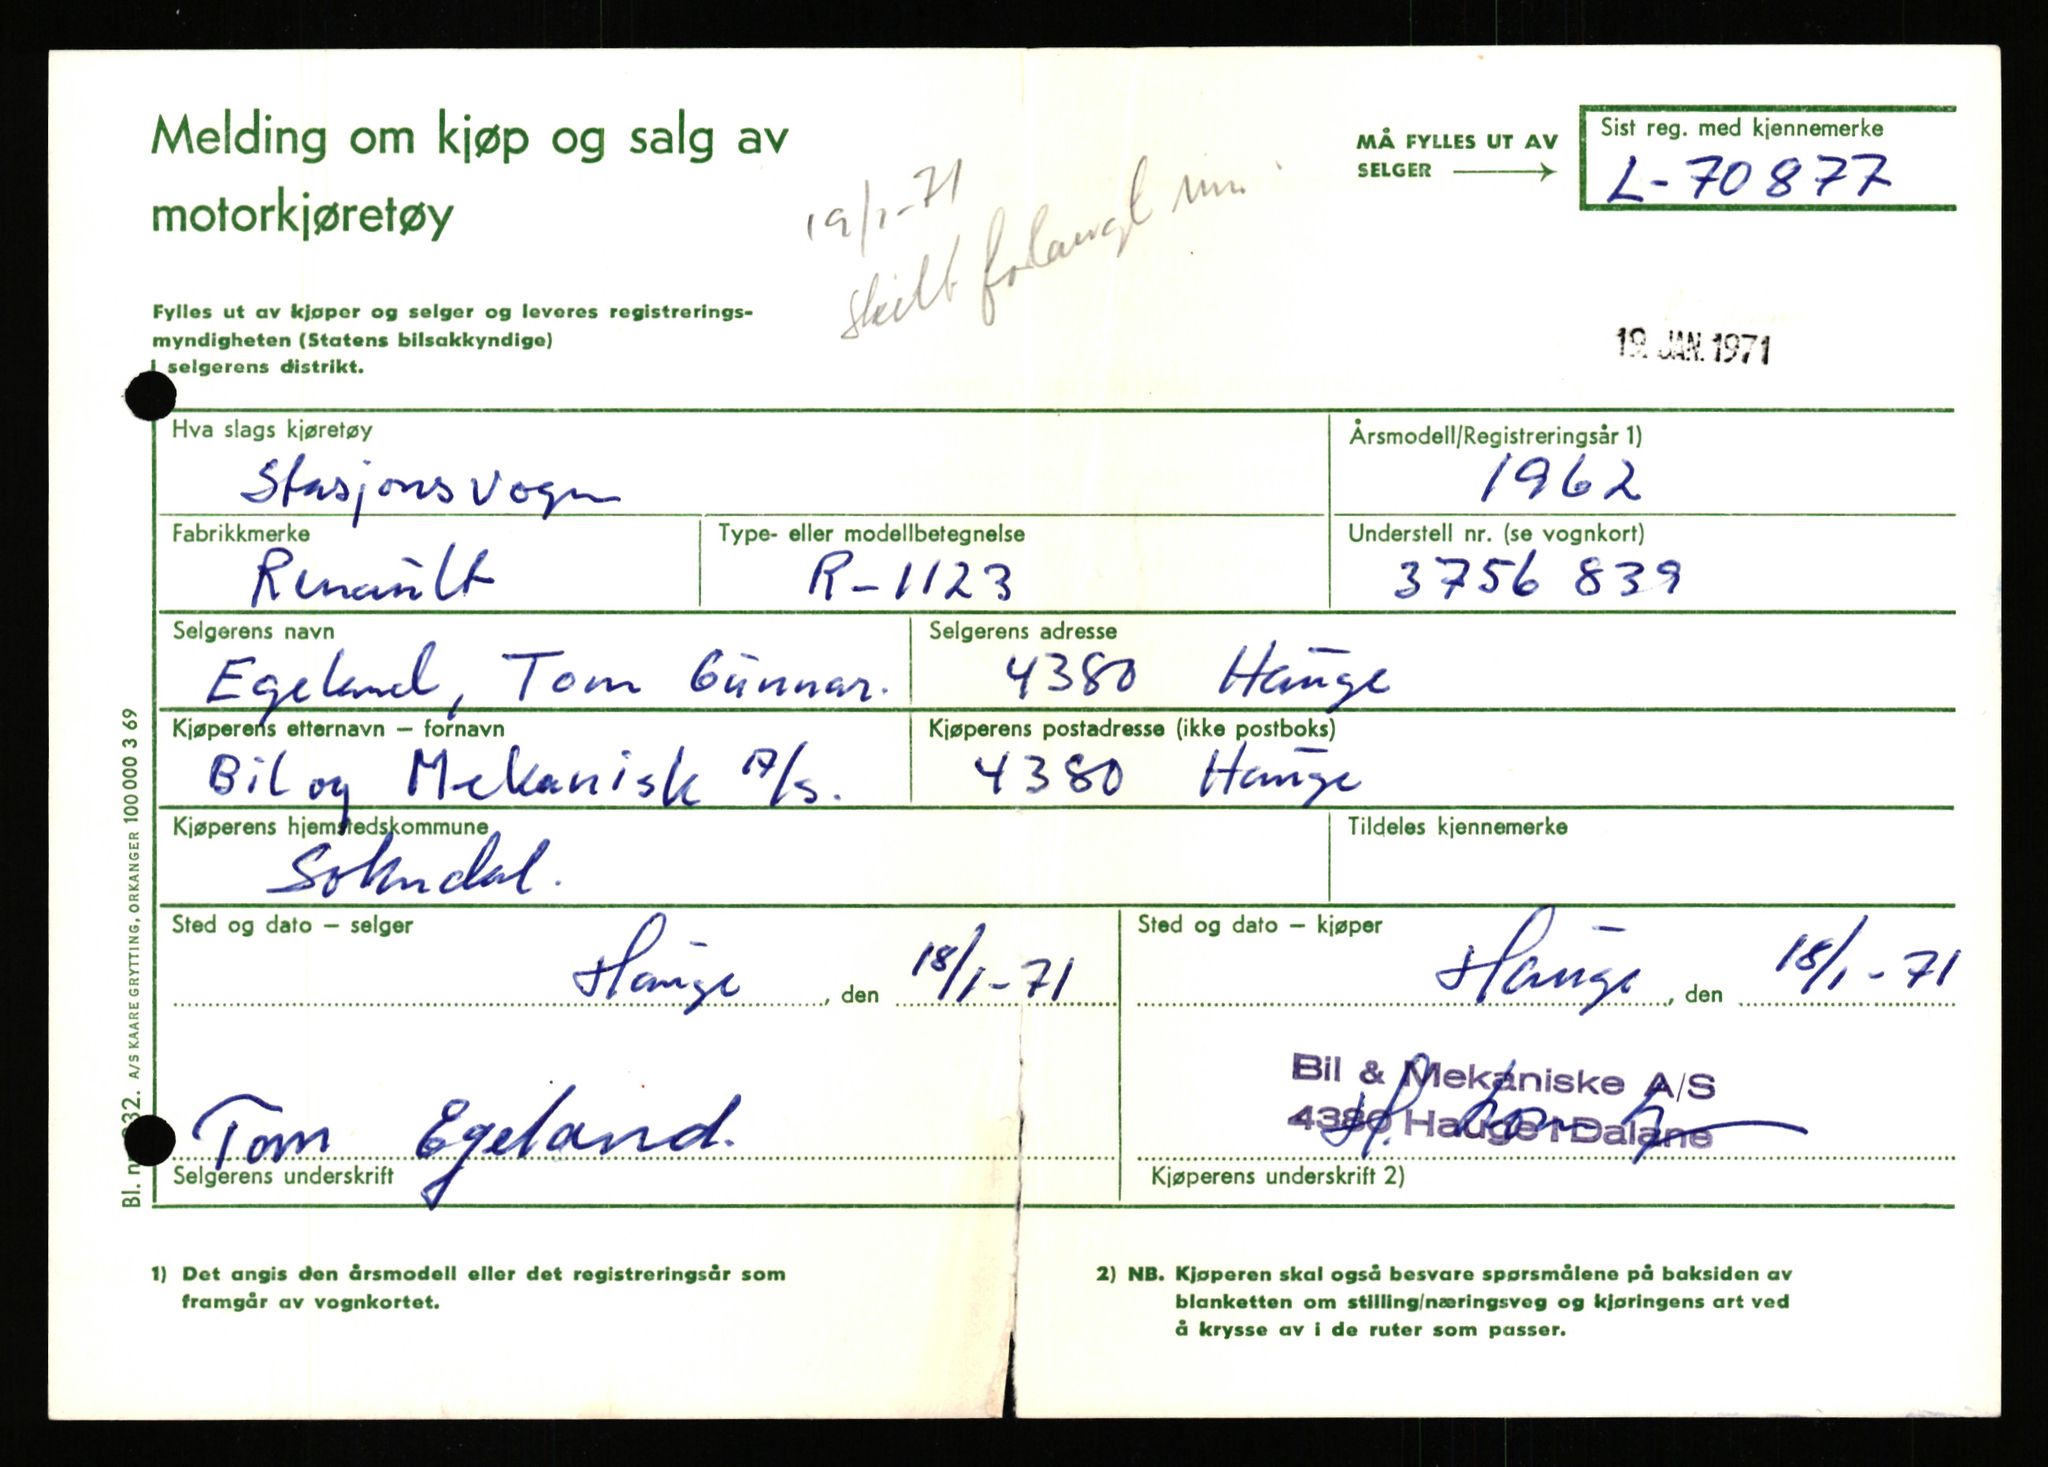 Melding om kjøp og salg av
motorkjøretøy
19/1-71
skilt forlangt inn.
MÅ FYLLES UT AV
SELGER
Sist reg. med kjennemerke
L-70877
Fylles ut av kjøper og selger og leveres registrerings-
myndigheten (Statens bilsakkyndige)
i selgerens distrikt.
19. JAN. 1971
Hva slags kjøretøy
Stasjonsvogn
Årsmodell/Registreringsår 1)
1962
Fabrikkmerke
Renault
Type- eller modellbetegnelse
R-1123
Understell nr. (se vognkort)
3756839
Selgerens navn
Egeland, Tom Gunnar.
Selgerens adresse
4380 Hauge
Kjøperens etternavn – fornavn
Bil og Mekanisk A/S.
Kjøperens postadresse (ikke postboks)
4380 Hauge
Kjøperens hjemstedskommune
Sokndal.
Tildeles kjennemerke
Sted og dato – selger
Hauge, den 18/1-71
Sted og dato – kjøper
Hauge, den 18/1-71
Tom Egeland.
Selgerens underskrift
Bil & Mekaniske A/S
4380 Hauge i Dalane
H.
Kjøperens underskrift 2)
1) Det angis den årsmodell eller det registreringsår som
framgår av vognkortet.
2) NB. Kjøperen skal også besvare spørsmålene på baksiden av
blanketten om stilling/næringsveg og kjøringens art ved
å krysse av i de ruter som passer.
Bl. n 232. A/S KAARE GRYTTING, ORKANGER 100 000 3 69